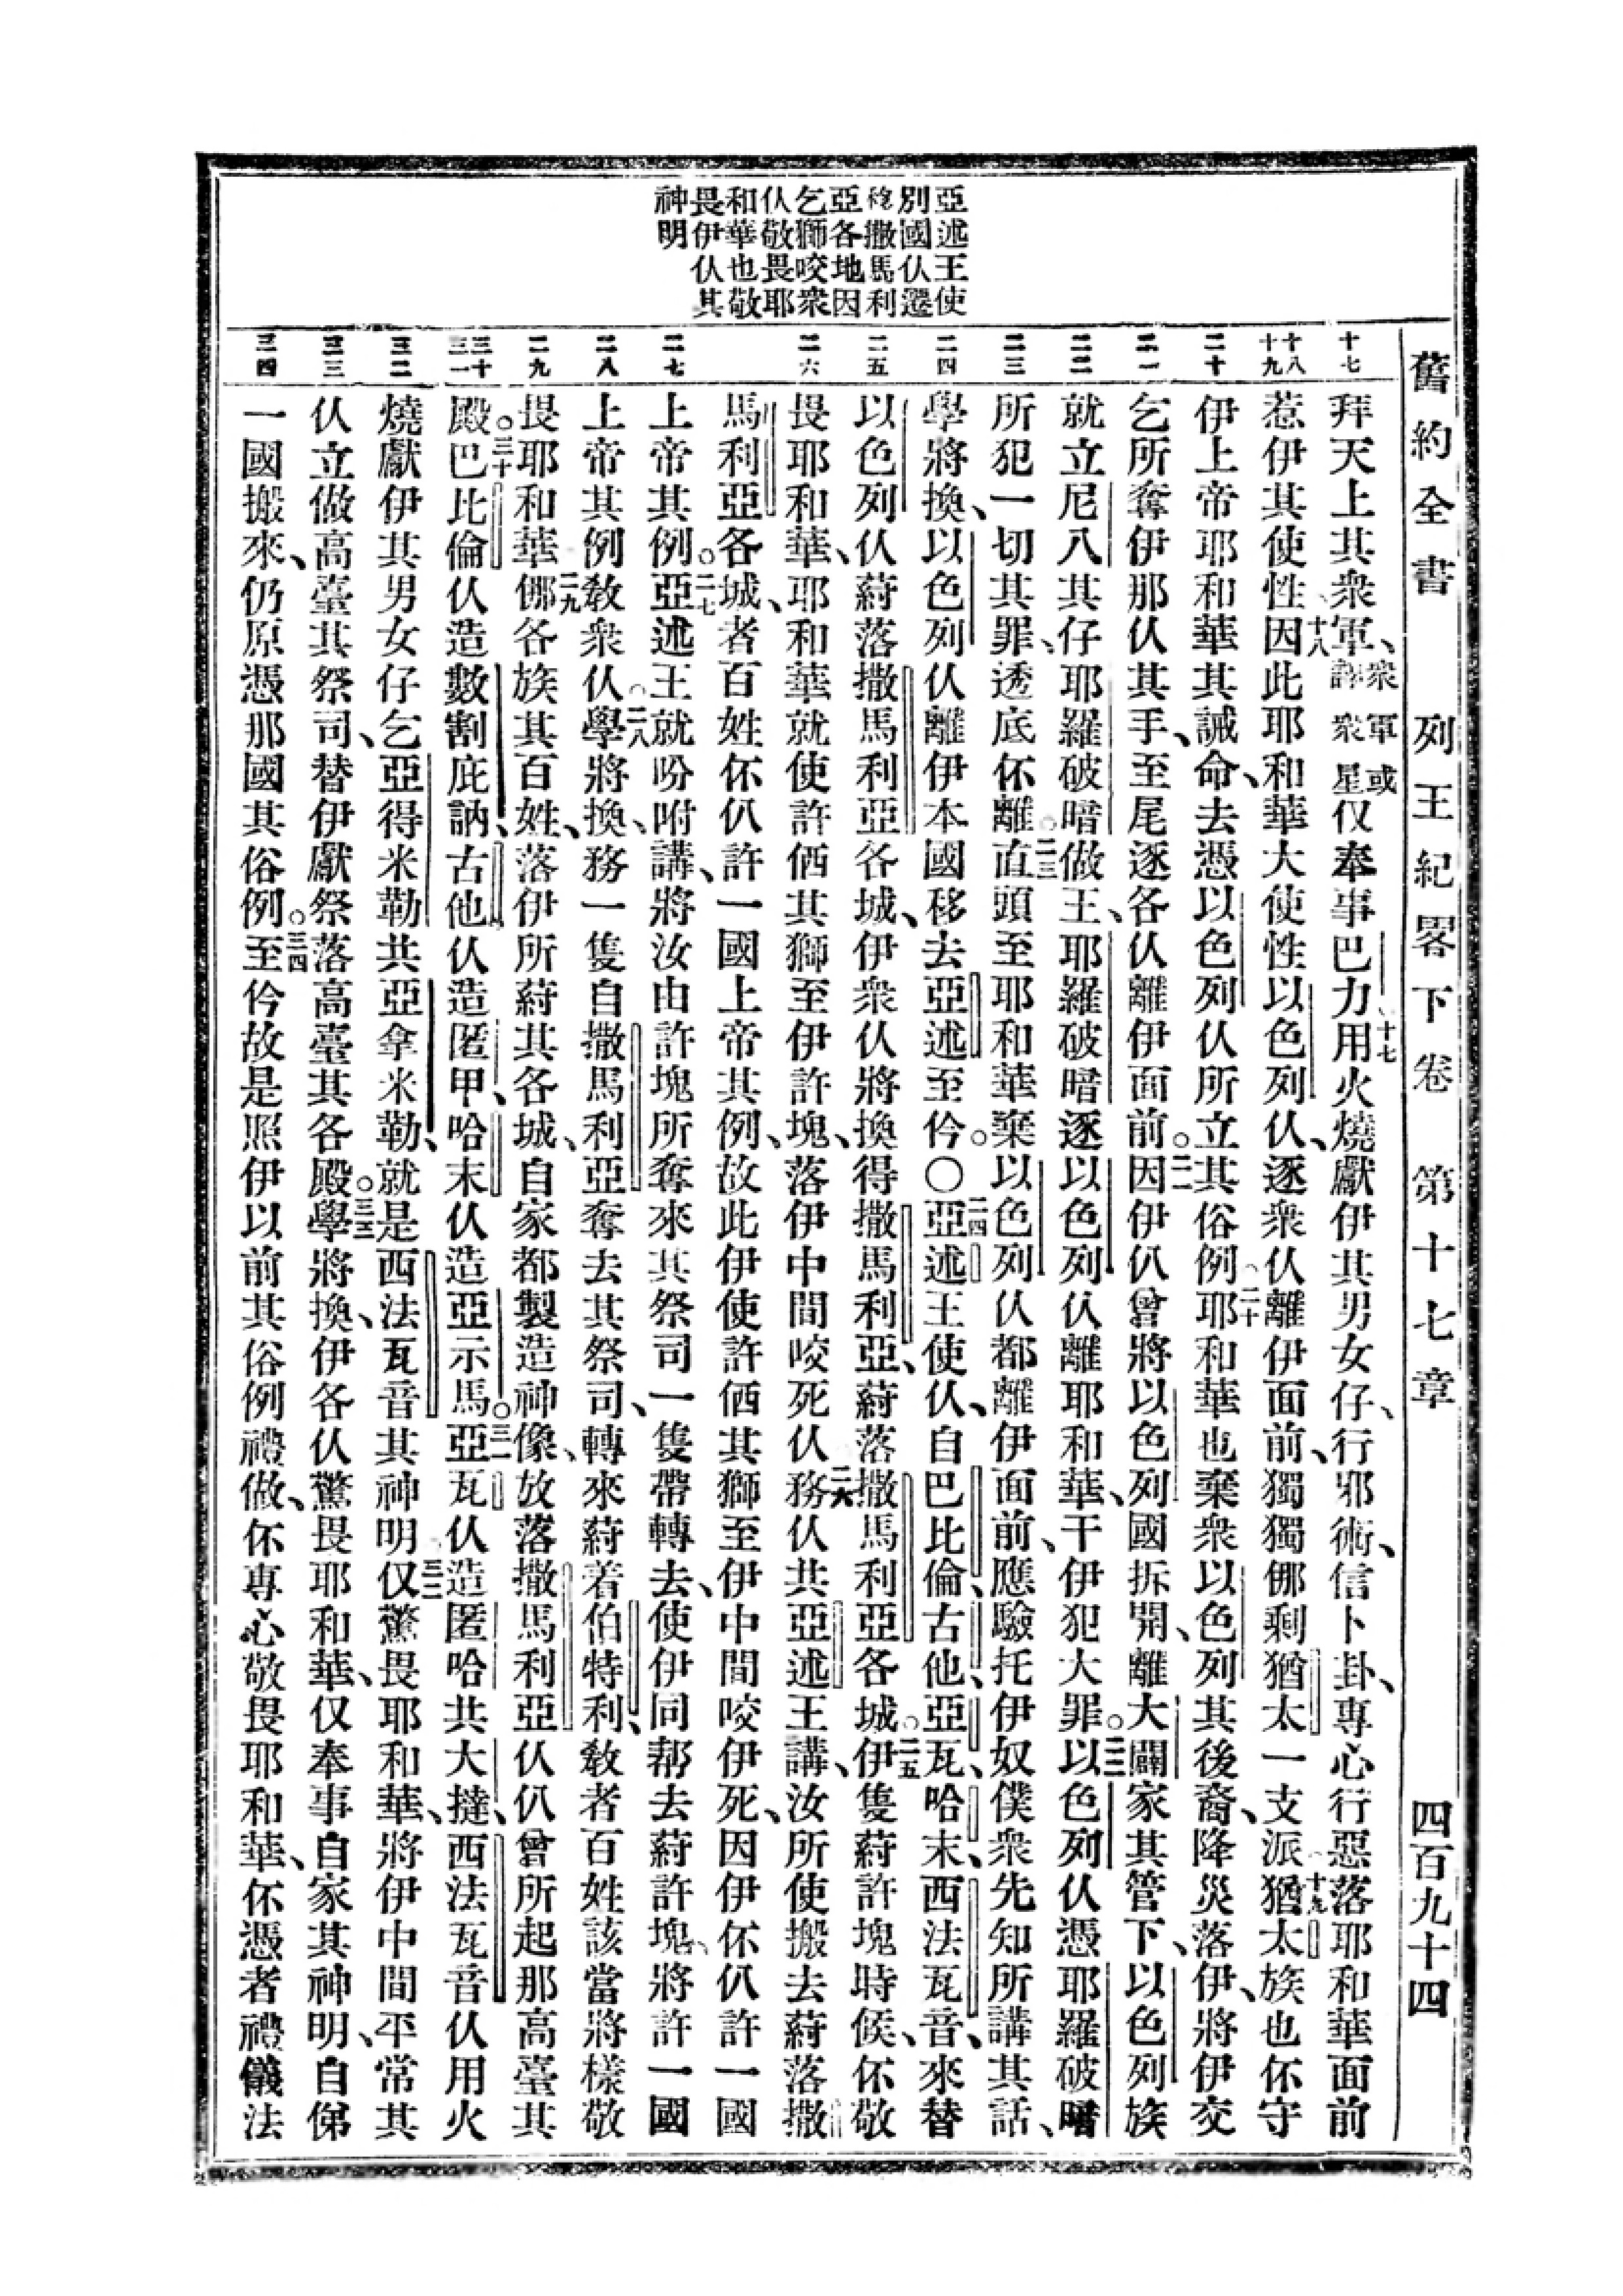 舊約全書 列王紀畧下卷 第十七章 四百九十四
亞述王使
別國仈遷
移撒馬利
亞各地因
乞獅咬衆
仈敬畏耶
和華也敬
畏伊仈其
神明
十七
十八
十九
二十
二一
二二
二三
二四
二五
二六
二七
二八
二九
三十
三一
三二
三三
三四
拜天上其衆軍、衆軍或譯衆星仅奉事巴力十七用火燒獻伊其男女仔、行邪術、信卜卦、專心行惡落耶和華面前
惹伊其使性十八因此耶和華大使性以色列仈、逐衆仈離伊面前、獨獨㑚剩猶太一支派十九猶太族也伓守
伊上帝耶和華其誡命、去憑以色列仈所立其俗例二十耶和華也棄衆以色列其後裔、降災落伊、將伊交
乞所奪伊那仈其手、至尾逐各仈離伊面前。二一因伊仈曾將以色列國拆開、離大闢家其管下、以色列族
就立尼八其仔耶羅破暗做王、耶羅破暗逐以色列仈離耶和華、干伊犯大罪。二二以色列仈憑耶羅破暗
所犯一切其罪、透底伓離。二三直頭至耶和華棄以色列仈都離伊面前、應驗托伊奴僕衆先知所講其話、
學將換、以色列仈離伊本國移去亞述至仱。〇二四亞述王使仈、自巴比倫、古他、亞瓦、哈末、西法瓦音、來替
以色列仈葤落撒馬利亞各城、伊衆仈將換得撒馬利亞、葤落撒馬利亞各城。二五伊隻葤許塊時候、伓敬
畏耶和華、耶和華就使許値其獅至伊許塊、落伊中間咬死仈二六務仈共亞述王講、汝所使搬去葤落撒
馬利亞各城、者百姓伓仈許一國上帝其例、故此伊使許値其獅至伊中間咬伊死、因伊伓仈許一國
上帝其例。二七亞述王就吩咐講、將汝由許塊所奪來其祭司一隻帶轉去、使伊同帮去葤許塊、將許一國
上帝其例教衆仈。二八學將換、務一隻自撒馬利亞奪去其祭司、轉來葤着伯特利、敎者百姓該當將樣敬
畏耶和華二九㑚各族其百姓、落伊所葤其各城、自家都製造神像、放落撒馬利亞仈仈曾所起那高臺其
殿。三十巴比倫仈造數割庇訥、古他仈造匿甲、哈末仈造亞示馬。三一亞瓦仈造匿哈共大撻、西法瓦音仈用火
燒獻伊其男女仔乞亞得米勒共亞拿米勒、就是西法瓦音其神明三二仅驚畏耶和華、將伊中間平常其
仈立做高臺其祭司、替伊獻祭落高臺其各殿。三三學將換、伊各仈驚畏耶和華、仅奉事自家其神明、自俤
一國搬來、仍原憑那國其俗例。三四至仱故是照伊以前其俗例禮做、伓專心敬畏耶和華、伓憑者禮儀法